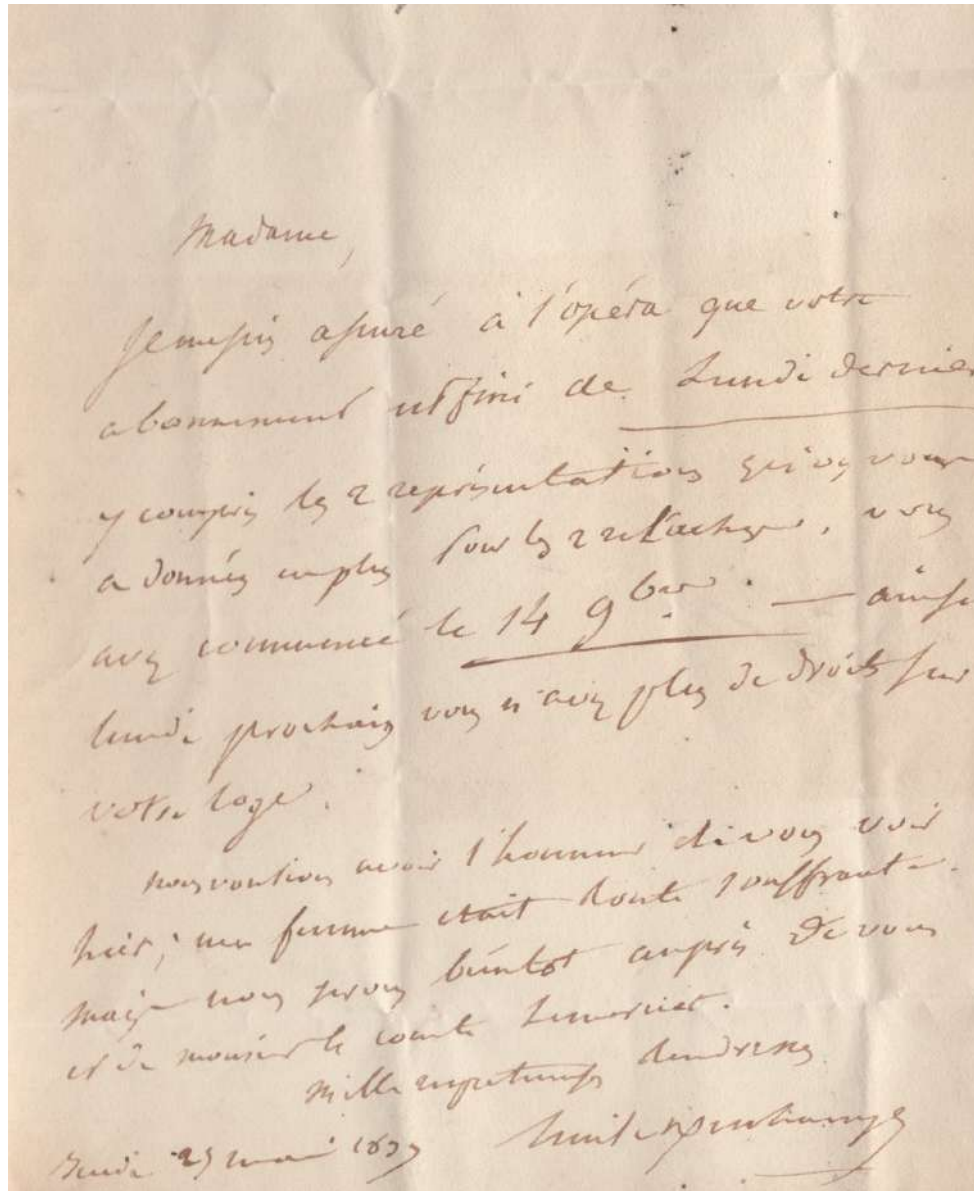 Madame,
Je me suis assuré à l'opéra que votre
abonnement est fini de Lundi dernier
y compris les 2 représentations qu'on vous
a données en plus pour les 2 relâches. vous
avez commencé le 14 9bre. — ainsi
lundi prochain vous n'avez plus de droits sur
votre loge.
nous voulions avoir l'honneur de vous voir
hier; ma femme était toute souffrante.
mais nous serons bientôt auprès de vous
et de monsieur le comte Lemercier.
mille respectueux
Emile Deschamps
Jeudi 25 mai